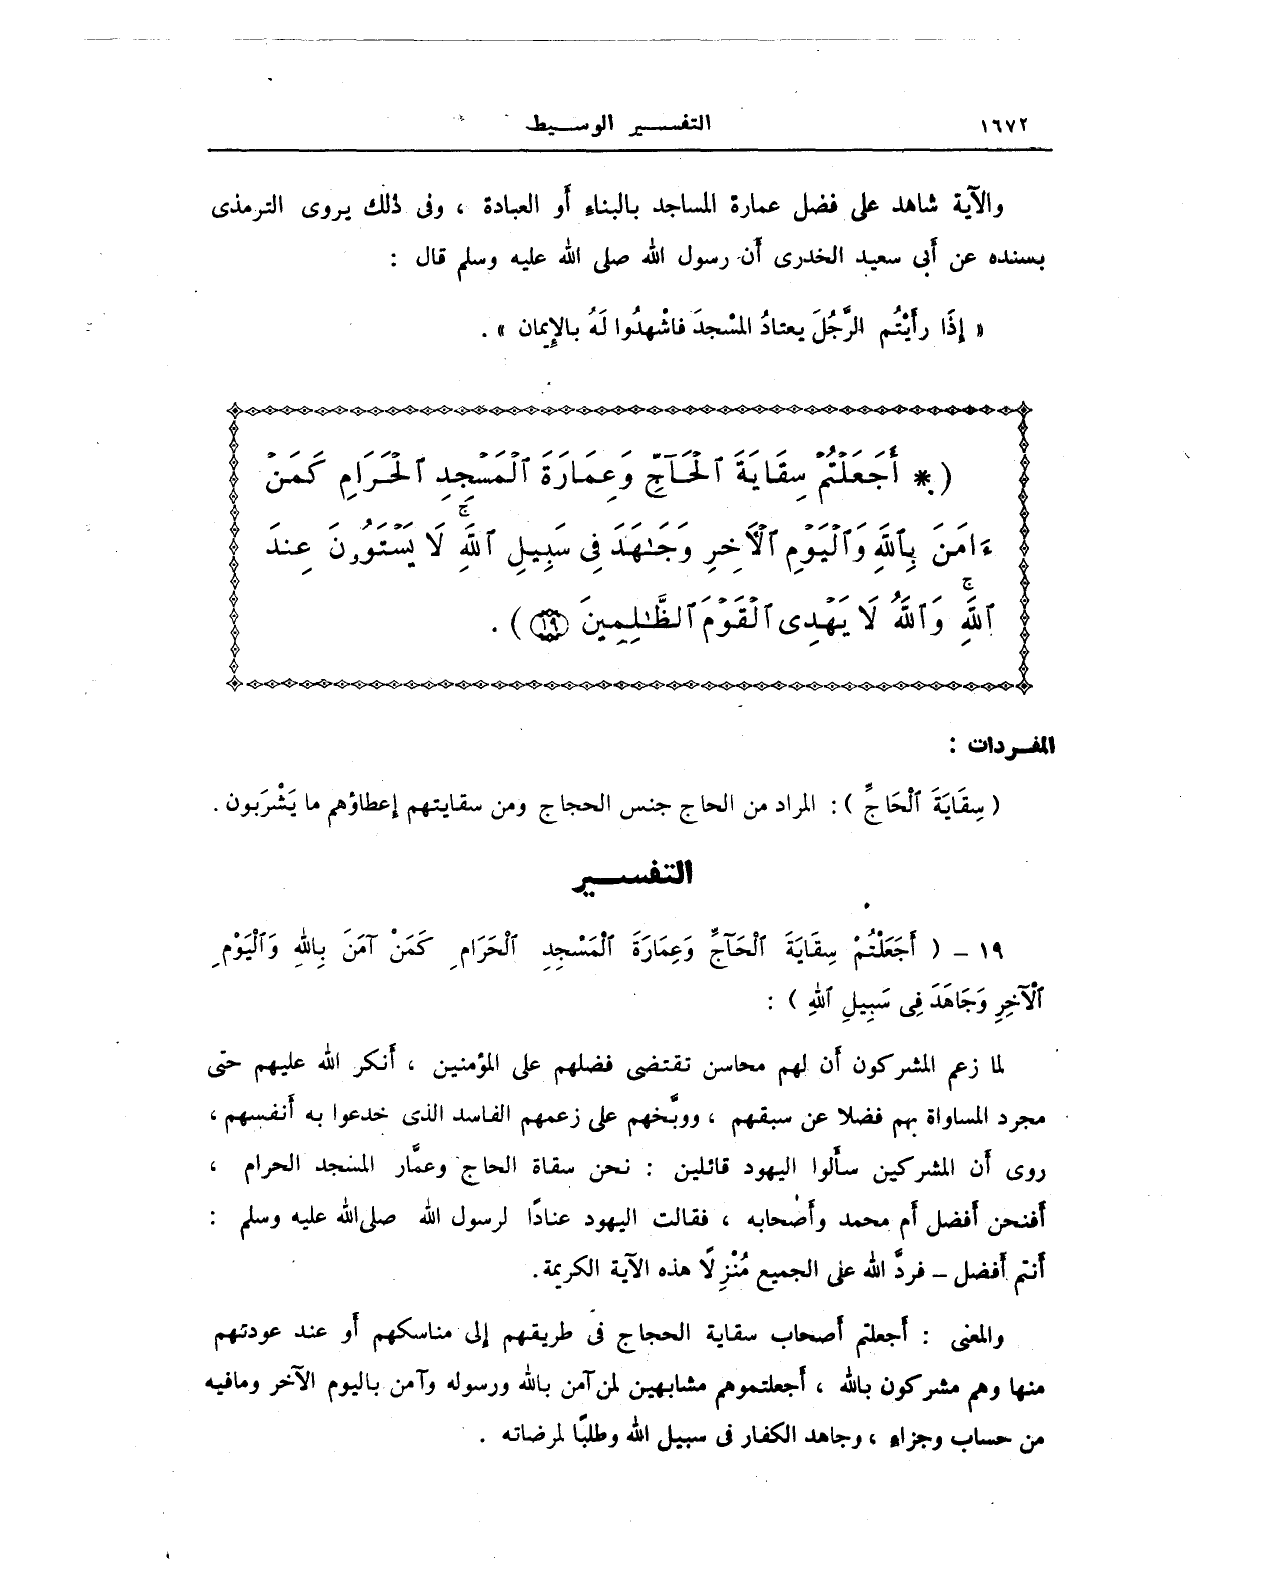 ١٦٧٢
التفسير الوسيط
والآية شاهد على فضل عمارة المساجد بالبناء أو العبادة ، وفى ذلك يروى الترمذى
بسنده عن أبى سعيد الخدرى أن رسول الله صلى الله عليه وسلم قال :
« إذَا رأيْتُم الرَّجُلَ يعتادُ المسْجدَ فاشْهدُوا لَهُ بالإيمان » .
( * أَجَعَلْتُمْ سِقَايَةَ ٱلْحَآجِّ وَعِمَارَةَ ٱلْمَسْجِدِ ٱلْحَرَامِ كَمَنْ
ءَامَنَ بِٱللَّهِ وَٱلْيَوْمِ ٱلْآخِرِ وَجَٰهَدَ فِى سَبِيلِ ٱللَّهِۚ لَا يَسْتَوُۥنَ عِندَ
ٱللَّهِۚ وَٱللَّهُ لَا يَهْدِى ٱلْقَوْمَ ٱلظَّٰلِمِينَ ١٩ ) .
المفردات :
( سِقَايَةَ ٱلْحَاجِّ ) : المراد من الحاج جنس الحجاج ومن سقايتهم إعطاؤهم ما يَشْرَبون .
التفسير
١٩ ــ ( أَجَعَلْتُمْ سِقَايَةَ ٱلْحَآجِّ وَعِمَارَةَ ٱلْمَسْجِدِ ٱلْحَرَامِ كَمَنْ آمَنَ بِاللهِ وَٱلْيَوْمِ
ٱلْآخِرِ وَجَاهَدَ فِى سَبِيلِ ٱللهِ ) :
لما زعم المشركون أن لهم محاسن تقتضى فضلهم على المؤمنين ، أنكر الله عليهم حتى
مجرد المساواة بهم فضلا عن سبقهم ، ووبَّخهم على زعمهم الفاسد الذى خدعوا به أنفسهم ،
روى أن المشركين سألوا اليهود قائلين : نحن سقاة الحاج وعمَّار المسجد الحرام ،
أفنحن أفضل أم محمد وأصحابه ، فقالت اليهود عنادًا لرسول الله صلى الله عليه وسلم :
أنتم أفضل ــ فردَّ الله على الجميع مُنْزِلًا هذه الآية الكريمة.
والمعنى : أجعلتم أصحاب سقاية الحجاج فى طريقهم إلى مناسكهم أو عند عودتهم
منها وهم مشركون بالله ، أجعلتموهم مشابهين لمن آمن بالله ورسوله وآمن باليوم الآخر ومافيه
من حساب وجزاء ، وجاهد الكفار فى سبيل الله وطلبًا لمرضاته .